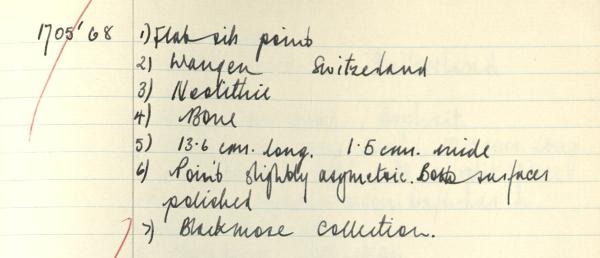 1705'68 1) Flat rib point
2) Wangen Switzerland
3) Neolithic
4) Bone
5) 13.6 cms. long. 1.5 cms. wide
6) Point slightly asymetric. Both surfaces
polished
7) Blackmore Collection.